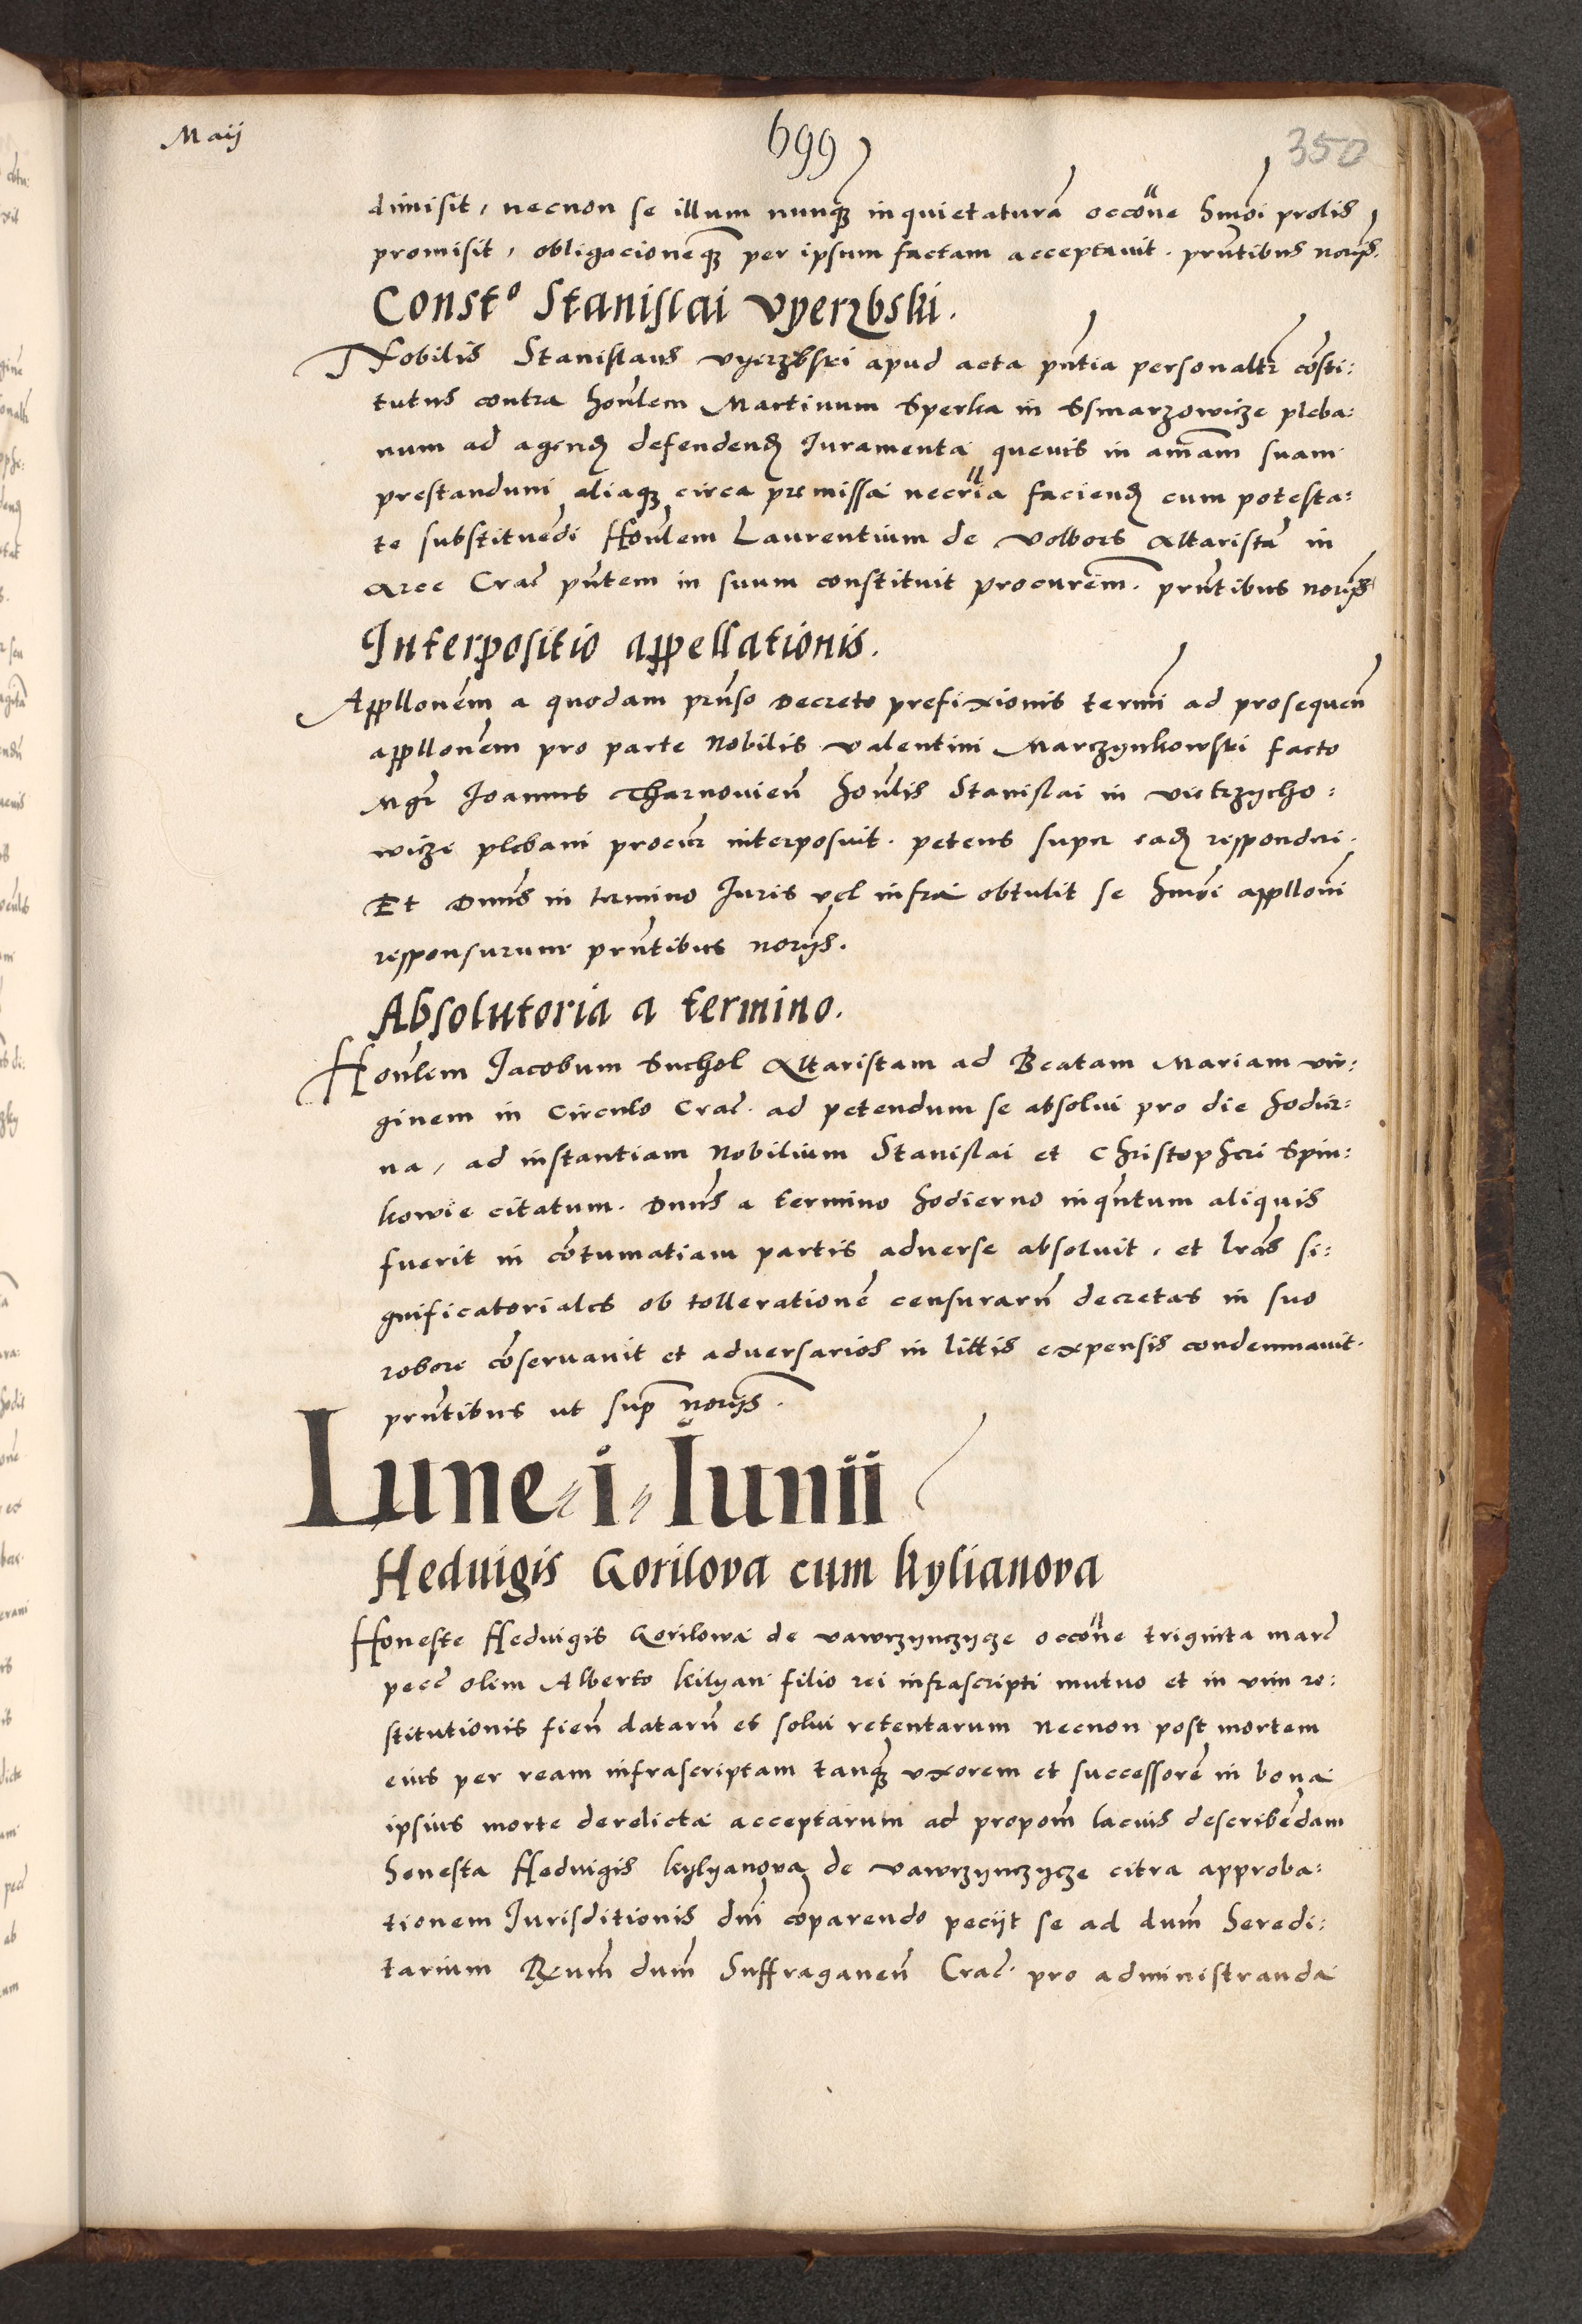 Maij
699
350
dimisit, necnon se illum nunq̃ inquietaturã occõne hmõi prolis
promisit, obligacionemq̃ per ipsum factam acceptavit. prñtibus norijs.
Constº Stanislai vyerzbski.
Nobilis Stanislaus vyerzbski apud acta pñtia personaltr cõsti:
tutus contra honlem Martinum Sperka in Ssmarzowicze pleba:
num ad agend defendend Juramenta quevis in animam suam
prestandum aliaq̃ circa premissa necria faciend cum potesta:
te substituẽdi Honlem Laurentium de volbors Altaristã in
Arce Crac̃ pñtem in suum constituit procurem. prñtibus norijs
Interpositio appellationis.
Appllonem a quodam prñso Decreto prefixionis termi ad prosequeñ
appllonem pro parte Nobilis valentini Marczynkowski facto
Mgr̃ Joannes Tharnovieñ honlis Stanislai in vietrzycho:
wicze plebani procur̃ interposuit. petens super ead responderi.
Et Dnus in termino Juris vel infra obtulit se hmõi applloni
responsurum prñtibus norijs.
Absolutoria a termino.
Honlem Jacobum Suchol Altaristam ad Beatam Mariam vir:
ginem in Circulo Crac̃. ad petendum se absolui pro die hodier:
na, ad instantiam Nobilium Stanislai et Christopheri Spin:
kowie citatum. Dnus a termino hodierno inqñtum aliquis
fuerit in cõtumatiam partis adverse absolvit, et lras si:
gnificatoriales ob tollerationẽ censurarũ decretas in suo
robore cõservavit et adversarios in littis expensis condemnavit.
prñtibus ut sup̃ norijs.
Lune i Iunii
Heduigis Gorilova cum kylianova
Honeste Heduigis Gorilowa de vawrzynczycze occõne triginta marc̃
pecc̃ olim Alberto kilyan filio rei infrascripti mutuo et in vim re:
stitutionis fieñ datarũ et solui retentarum Necnon post mortem
eius per ream infrascriptam tanq̃ uxorem et successorẽ in bona
ipsius morte derelicta acceptarum ad propom̃ lacius describẽdam
honesta Heduigis kylyanova de vawrzynczycze citra approba:
tionem Jurisditionis dni cõparendo pecijt se ad dnum heredi:
tarium Rẽum dnum Suffraganeũ Crac̃. pro administranda